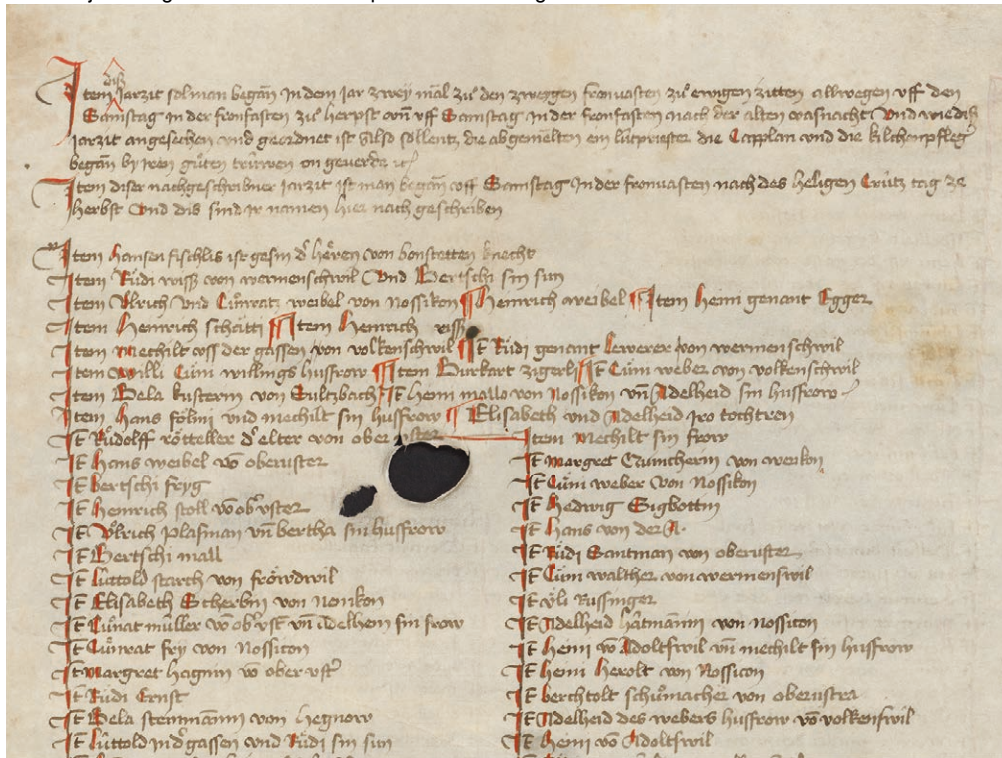 Item diß Jarzit sol man began In dem Jar zwey mal zuͦ den zweyen fronuasten zuͦ ewigen zitten allwegen vff den
Samstag In der fronfasten zuͦ herpst vnn vff Samstag In der fronfasten nach der alten vasnacht Vnd wie dis
Jarzit angesechen vnd geordnet ist Also sollentz die abgemelten ein lütpriester die Capplan vnd die kilchenpfleger
began by iren guͦten trüwen on geuerde
Item diser nachgeschribner Jarzit ist man began vff Samstag In der fronuasten nach des heligen Crütz tag ze
herbst Vnd dis sind ir namen hier nach geschriben
Item Hansen fischlis ist gesin dˀ heren von bonstetten knecht
Item Ruͤdi wiss von wermenschwil Vnd Bertschi sin sun
Item Vlrich Vnd Cuͤnratz weibel von Nossikon Heinrich weibel Item Heini genant Egger
Item Heinrich schätti Item Heinrich wiss
Item Mechilt vss der gassen von volkenschwil It Ruͤdi genant Lewerer von wermenschwil
Item Willi Cuͤni willings husfrow Item Burkart zigerli It Cuͤni weber von volkenschwil
Item Bela kusterin von Sultzbach It Heini mallo von Nossikon vn̄ Adelheid sin husfrow
Item Hans fölmi vnd mechilt sin husfrow Elisabeth vnd Adelheid iro tochtren
It Ruͤdolff rötteller dˀ elter von ober vster Item Mechilt sin frow
It Hans weibel vō oberuster
It Bertschi fryg
It Heinrich stoll vō obˀ vster
It Vlrich plasman vn̄ bertha sin husfrow
It Bertschi mall
It Lüttold starch von fröwdwil
It Elisabeth Scherbin von Nenikon
It Cuͤnrat müller vō obˀ vstˀ vn̄ sin frow
It Cuͤnrat fry von Nossikon
It Margret hagnin vō ober vstˀ
It Ruͤdi Ernst
It Bela steinmānin von Hegnow
It Lüttold in dˀ gassen vnd Ruͤdi sin sun
It Margret von werikon
It Cuͤni weber Von Nossikon
It Hedwig Sigbottin
It Hans von der A
It Ruͤdi Santman von oberuster
It Cuͤni walther von wermenswil
It Vͤli Russinger
It Adelheid hātmānin von Nossicon
It Heini vō Adoltswil vn̄ mechilt sin husfrow
It Heini herolt von Nossicon
It berchtolt schuͦmacher von oberustra
It Adelheid des webers husfrow vō volkenswil
It Heini vō Adoltswil